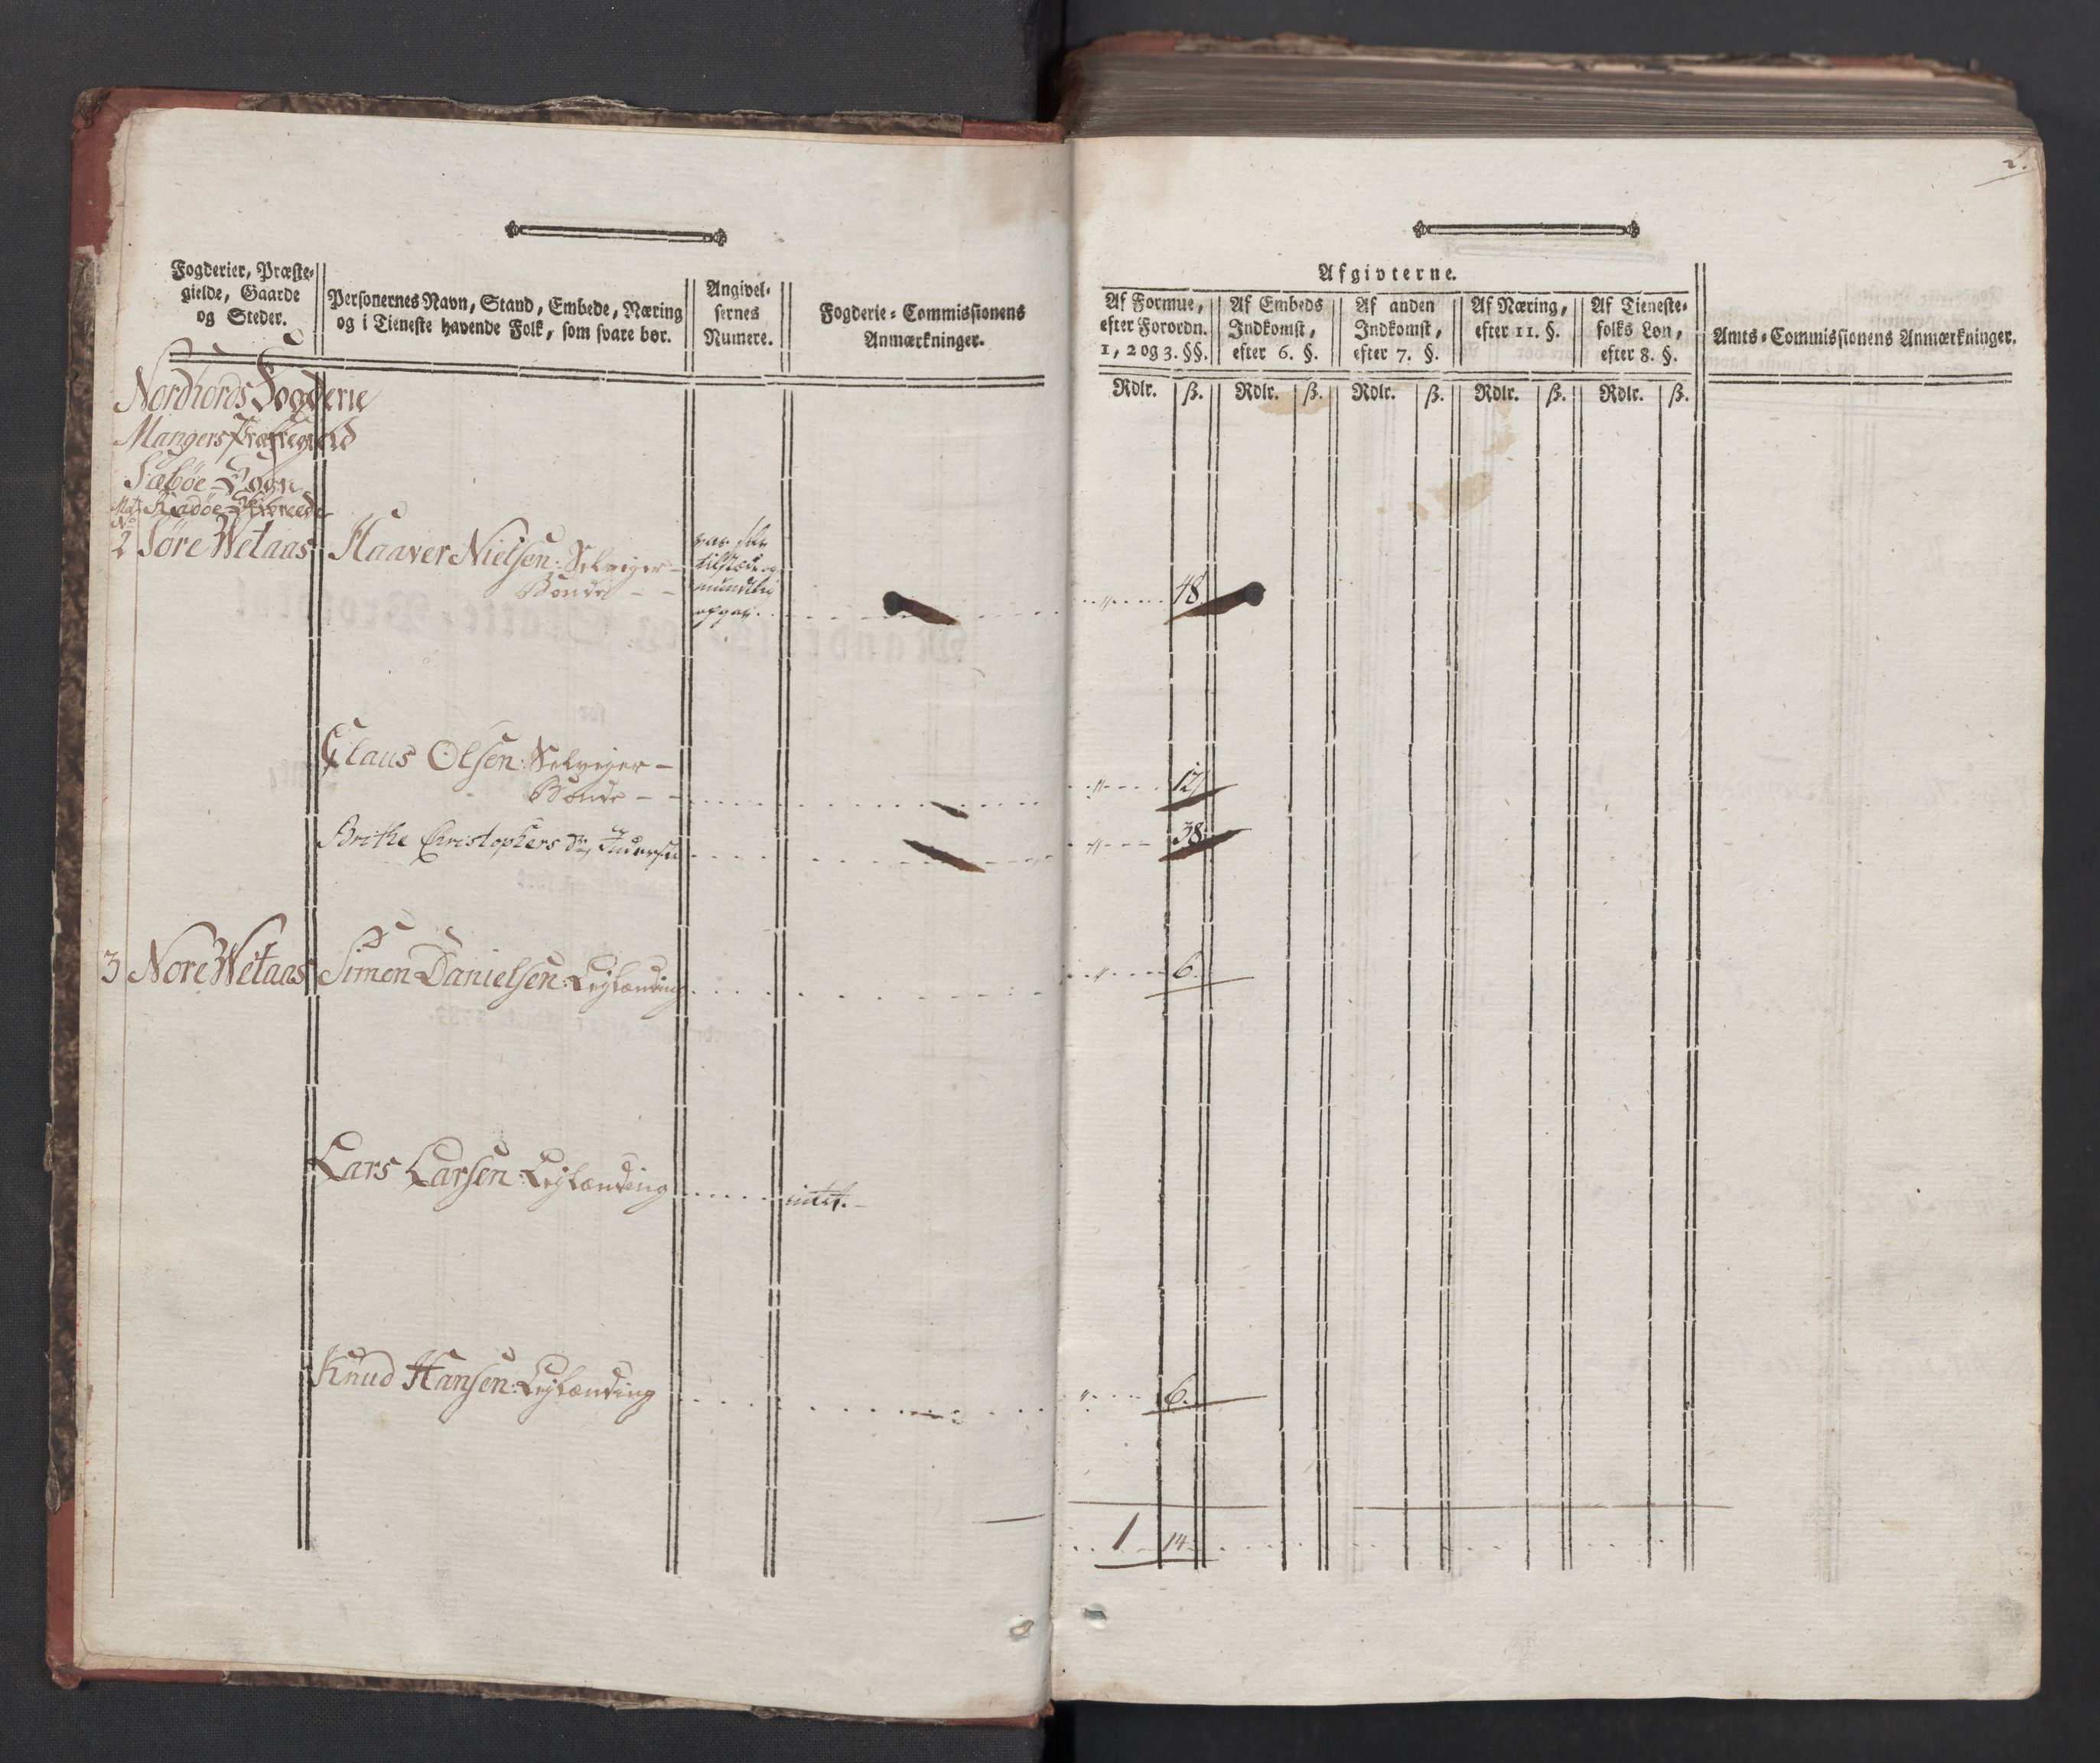 2.
Fogderier, Præste-
gielde, Gaarde
og Steder.
Personernes Navn, Stand, Embede, Næring
og i Tieneste havende Folk, som svare bør.
Angivel-
sernes
Numere.
Fogderie-Commissionens
Anmærkninger.
Afgivterne.
Af Formue,
efter Forordn.
1, 2 og 3. §§.
Af Embeds
Indkomst,
efter 6. §.
Af anden
Indkomst,
efter 7. §.
Af Næring,
efter 11. §.
Af Tieneste-
folks Løn,
efter 8. §.
Amts-Commissionens Anmærkninger.
Rdlr. ß. Rdlr. ß. Rdlr. ß. Rdlr. ß. Rdlr. ß.
Nordhords Fogderie
Mangers Præstegield
Sæbøe-Sogn
Radøe-Skibreede
No
2 Søre Wetaas Haaver Nielsen: Selveiger- 
Bonde - -
var selv
tilstæde og
mundtlig
opgav. " 48.
Claus Olsen: Selveiger-
Bonde - - " 12
Brithe Christophers Dr, " 38
3 Nore Wetaas Simon Danielsen: Leylænding " 6.
Lars Larsen: Leylænding intet.
Knud Hansen: Leylænding " 6.
1 14